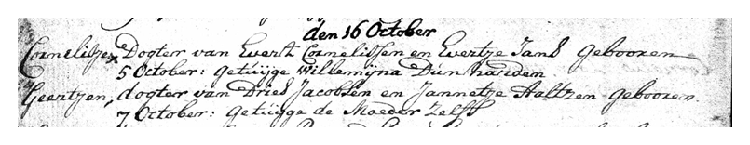 den 16 October
Cornelisjen, Dogter van Evert Cornelissen en Evertje Jans gebooren
5 October: getuijge Willemijna Dunhardem
Geertjen, dogter van Dries Jacobsen en Jannetje Haltzen gebooren
7 October: getuijge de Moeder Zelfs